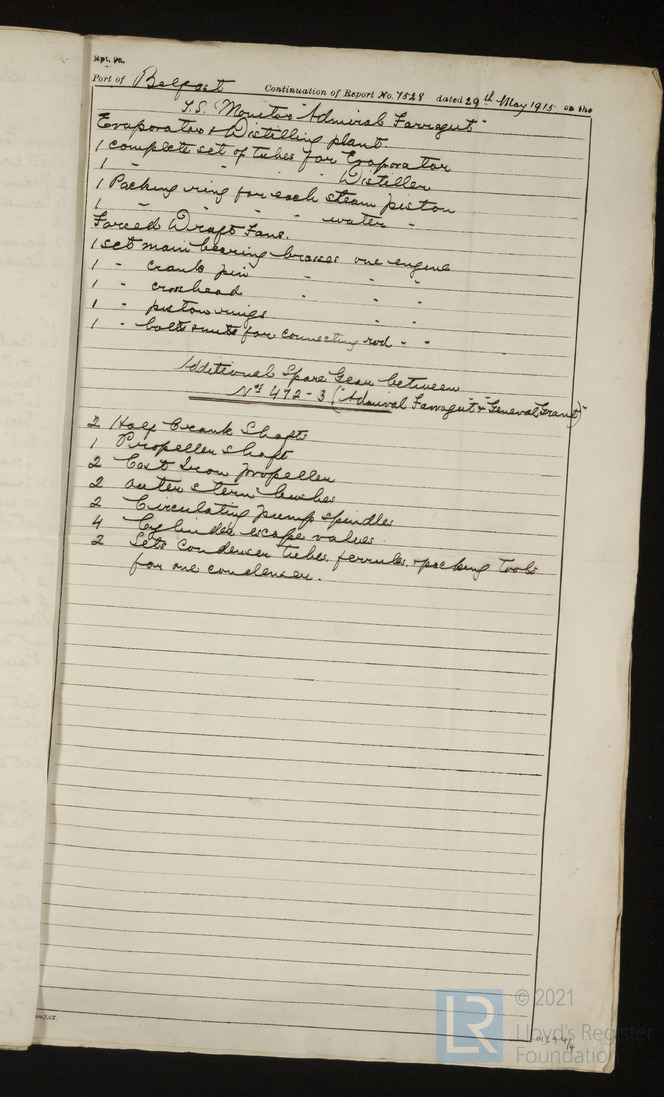 Rpt. 9a.
Port of Belfast Continuation of Report No. 7528 dated 29th May 1915 on the
T.S. Monitor "Admiral Farragut"
Evaporator & Distilling plant.
1 complete set of tubes for Evaporator
1 " " " " Distiller
1 Packing ring for each steam piston
1 " " " " water "
Forced Draft Fans.
1 set main bearing brasses one engine
1 " crank pin " " "
1 " crosshead " " "
1 " piston rings " "
1 " bolts & nuts for connecting rod " "
Additional Spare Gear between
Nos 472-3 ("Admiral Farragut" & "General Grant")
2 Half Crank Shafts
1 Propeller shaft
2 Cast Iron propeller
2 outer stern bushes
2 Circulating pump spindles
4 Cylinder escape valves.
2 Sets condenser tubes, ferrules, & packing tools
for one condenser.
© 2021
Lloyd's Register
Foundation
LR